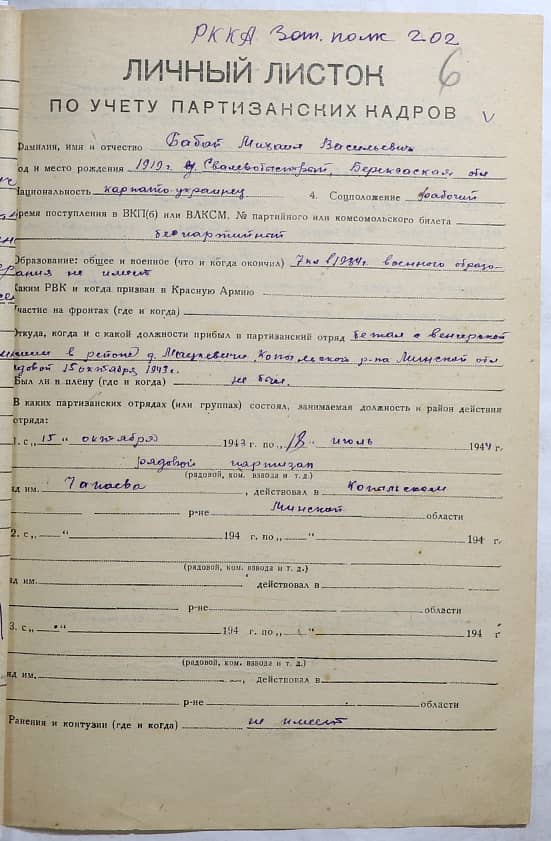 РККА Зап. полк 202
6
ЛИЧНЫЙ ЛИСТОК
ПО УЧЕТУ ПАРТИЗАНСКИХ КАДРОВ
Фамилия, имя и отчество Бабой Михаил Васильевич
од и место рождения 1919 г. Береговская обл
Национальность карпато-украинец 4. Соцположение рабочий
Время поступления в ВКП(б) или ВЛКСМ, № партийного или комсомольского билета
беспартийный
Образование: общее и военное (что и когда окончил) 7 кл в 1934г. военного образо-
вания не имеет
Каким РВК и когда призван в Красную Армию
Участие на фронтах (где и когда)
Откуда, когда и с какой должности прибыл в партизанский отряд бежал с венгерской
армии в районе д. Мацкевичи Копыльского р-на Минской обл
рядовой 15 октября 1943 г.
Был ли в плену (где и когда) не был.
В каких партизанских отрядах (или группах) состоял, занимаемая должность и район действия
отряда:
1. с „15“ октября 1943 г. по „18“ июль 1944 г.
рядовой партизан
(рядовой, ком. взвода и т. д.)
яд им. Чапаева, действовал в Копыльском
р-не Минской области
2. с „ “ 194 г. по „ “ 194 г.
(рядовой, ком. взвода и т. д.)
яд им. действовал в
р-не области
3. с „ “ 194 г. по „ “ 194 г
(рядовой, ком. взвода и т. д.)
яд им. , действовал в
р-не области
Ранения и контузии (где и когда) не имеет